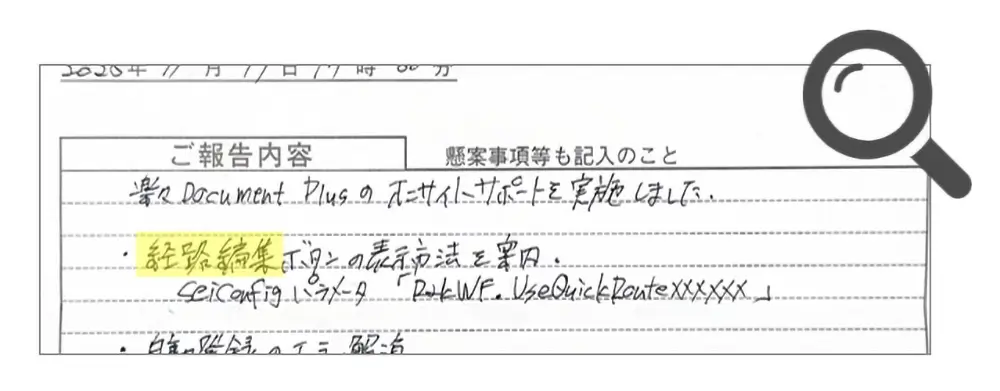 2020年 11月 17日 17時 00分
ご報告内容 懸案事項等も記入のこと
楽々Document Plusのオンサイトサポートを実施しました.
・経路編集ボタンの表示方法を案内.
SeiConfigパラメータ「RakWF.UseQuickRouteXXXXXX」